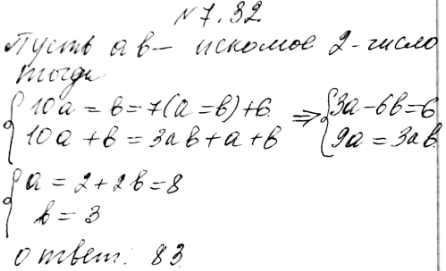 №7.32
Пусть ab – искомое 2-число
тогда
{10a = b = 7(a = b) + 6 ⇒ {3a - 6b = 6
{10a + b = 3ab + a + b {9a = 3ab
{a = 2 + 2b = 8
{b = 3
ответ: 83